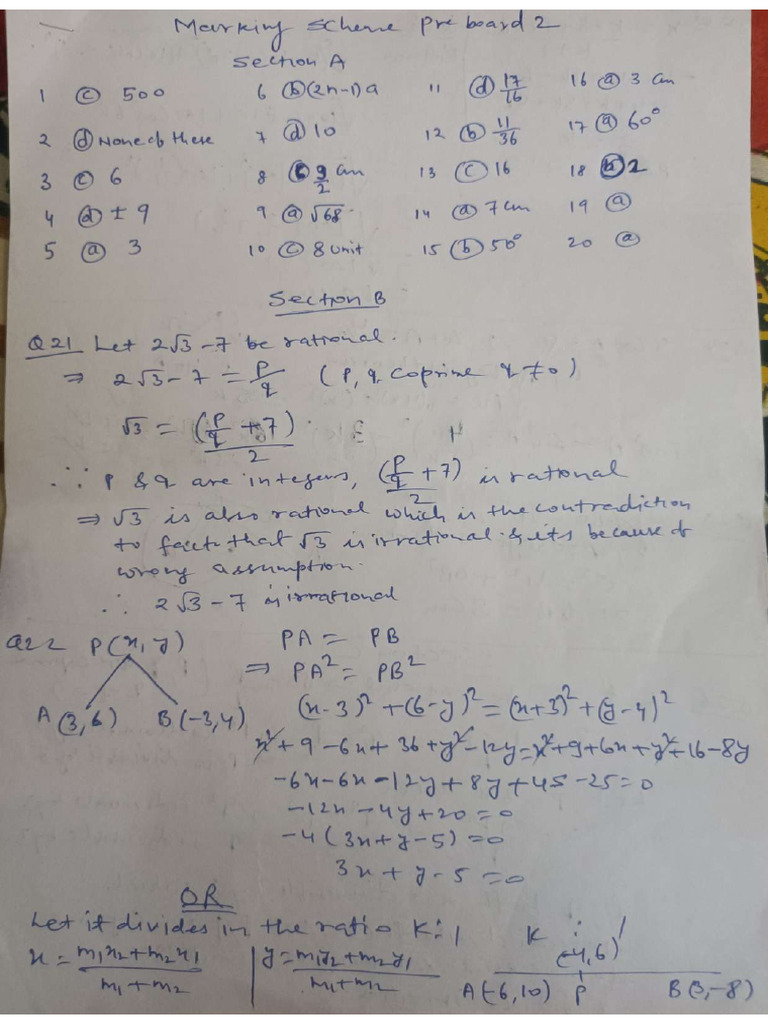 Marking Scheme Pre board 2
Section A
1 (c) 500 6 (b) (2n-1)a 11 (d) 17/16 16 (a) 3 cm
2 (d) None of these 7 (d) 10 12 (b) 11/36 17 (a) 60°
3 (c) 6 8 (c) 9/2 cm 13 (c) 16 18 (b) 2
4 (d) ± 9 9 (a) √68 14 (a) 7 cm 19 (a)
5 (a) 3 10 (c) 8 unit 15 (b) 50° 20 (a)
Section B
Q21 Let 2√3 - 7 be rational.
⇒ 2√3 - 7 = p/q (p, q coprime q ≠ 0)
√3 = (p/q + 7)/2
∵ p & q are integers, (p/q + 7)/2 is rational
⇒ √3 is also rational which is the contradiction
to fact that √3 is irrational & its because of
wrong assumption.
∴ 2√3 - 7 is irrational
Q22 P(x, y) PA = PB
⇒ PA² = PB²
A(3,6) B(-3,4) (x-3)² + (6-y)² = (x+3)² + (y-4)²
x² + 9 - 6x + 36 + y² - 12y = x² + 9 + 6x + y² + 16 - 8y
-6x - 6x - 12y + 8y + 45 - 25 = 0
-12x - 4y + 20 = 0
-4(3x + y - 5) = 0
3x + y - 5 = 0
OR
Let it divides in the ratio K:1 K : 1
x = (m₁x₂ + m₂x₁)/(m₁ + m₂) | y = (m₁y₂ + m₂y₁)/(m₁ + m₂) (-4,6)
A(-6,10) P B(3,-8)